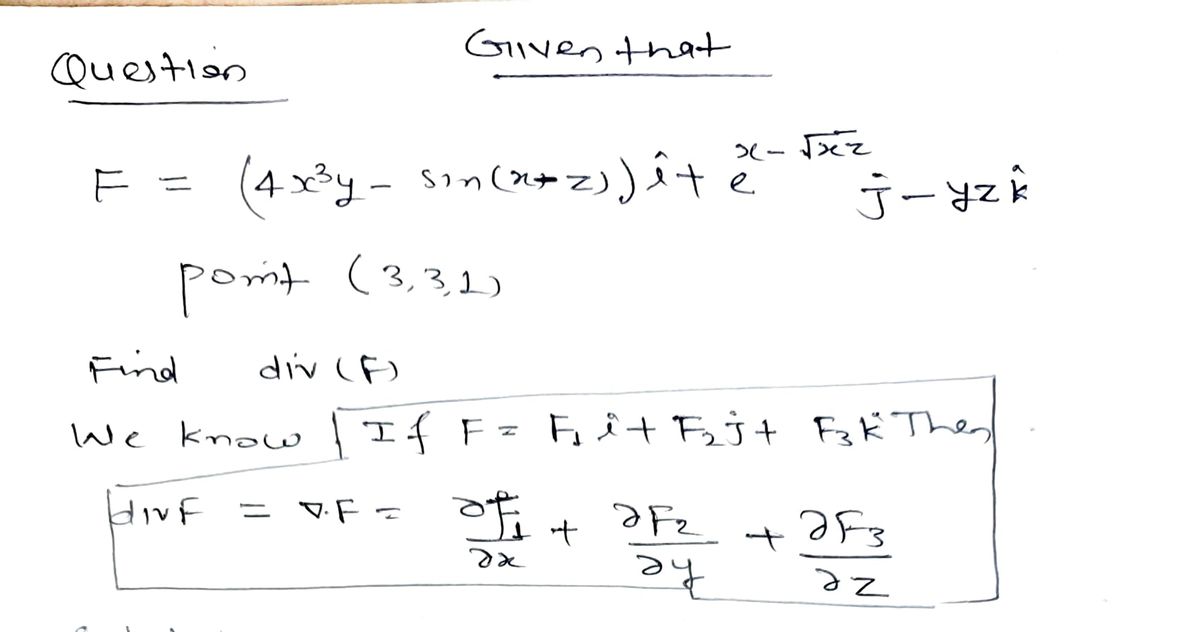 Question Given that
F = (4x³y - sin(x+z)) î + e^(x-√xz) ĵ - yz k̂
point (3,3,1)
Find div (F)
We know If F = F₁ î + F₂ ĵ + F₃ k̂ Then
div F = ∇.F = ∂F₁/∂x + ∂F₂/∂y + ∂F₃/∂z